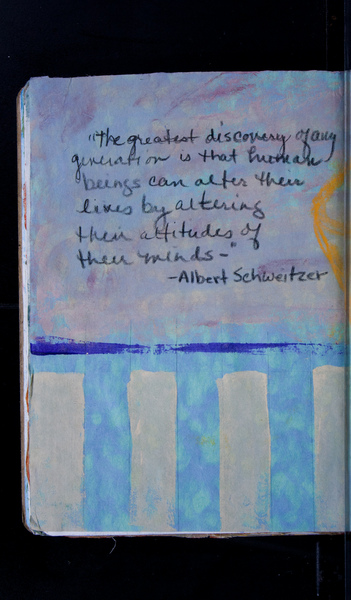 "The greatest discovery of any
generation is that human
beings can alter their
lives by altering
their attitudes of
their minds-"
-Albert Schweitzer